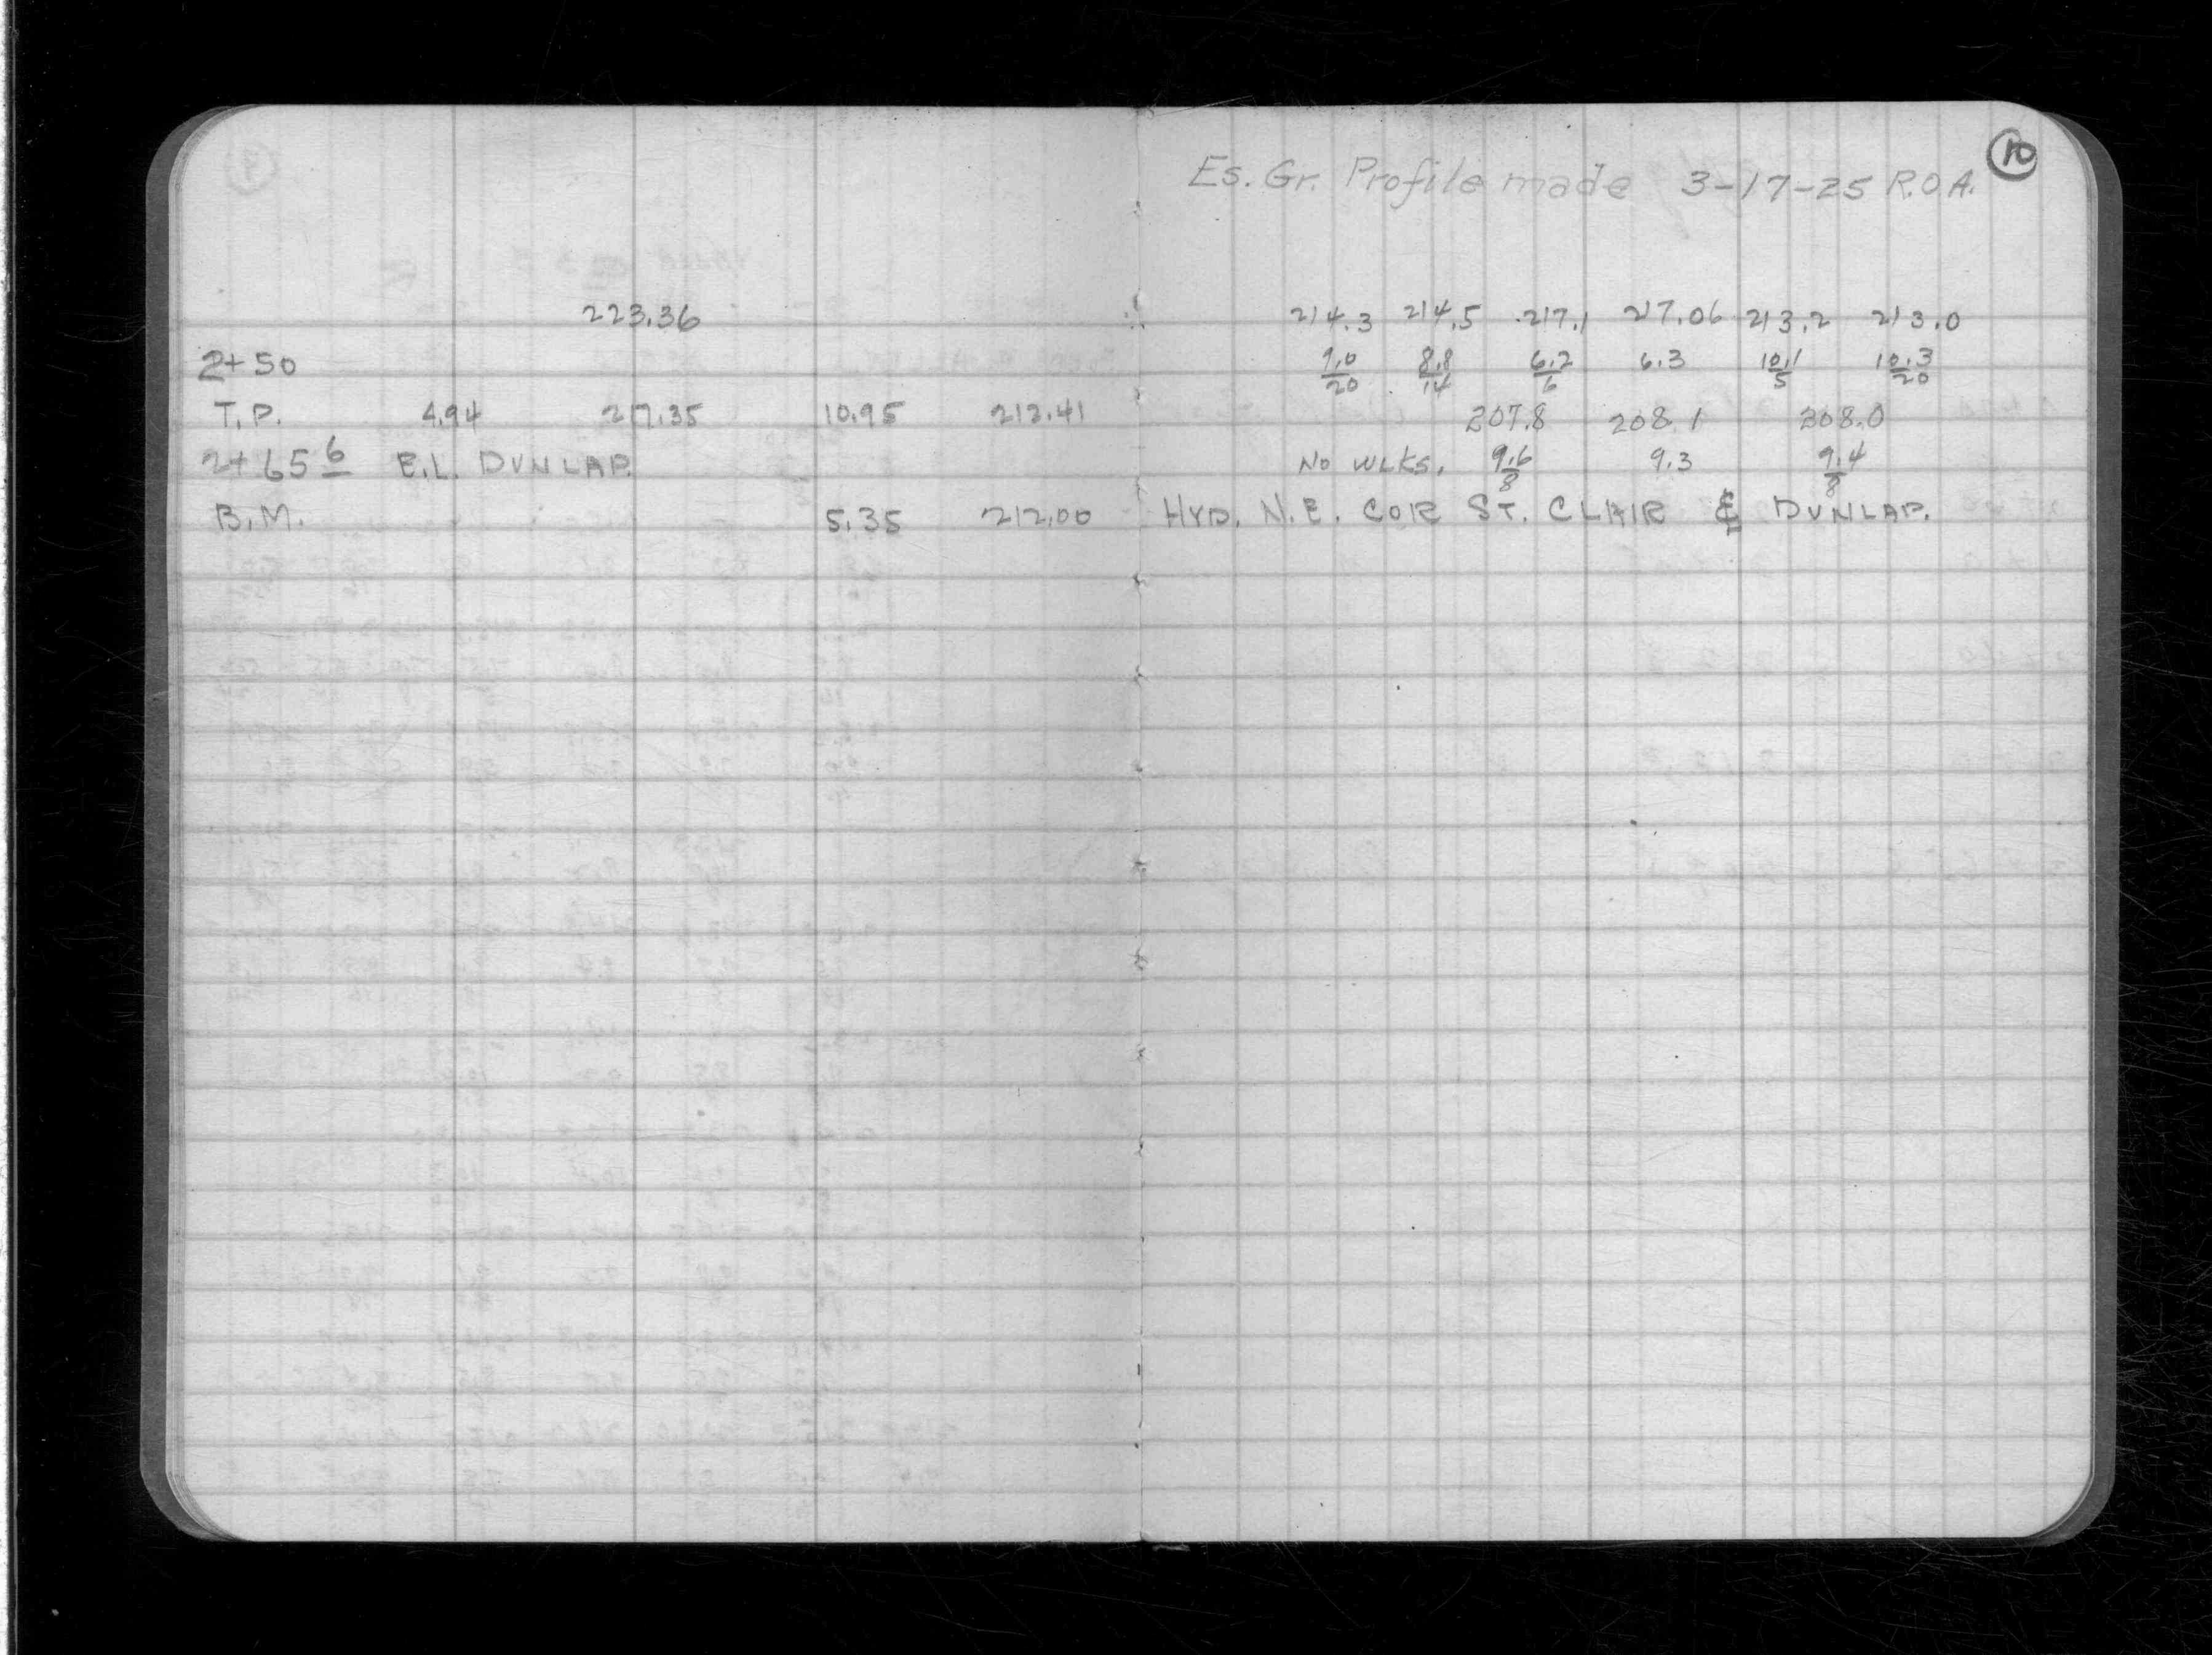 10
Es. Gr. Profile made 3-17-25 R.O.A.
223.36 214.3 214.5 217.1 217.06 213.2 213.0
2+50 9.0/20 8.8/14 6.2/6 6.3 10.1/5 10.3/20
T.P. 4.94 217.35 10.95 212.41 207.8 208.1 208.0
2+65 6 E.L. DUNLAP. NO WLKS. 9.6/8 9.3 9.4/8
B.M. 5.35 212.00 HYD. N.E. COR ST. CLAIR & DUNLAP.